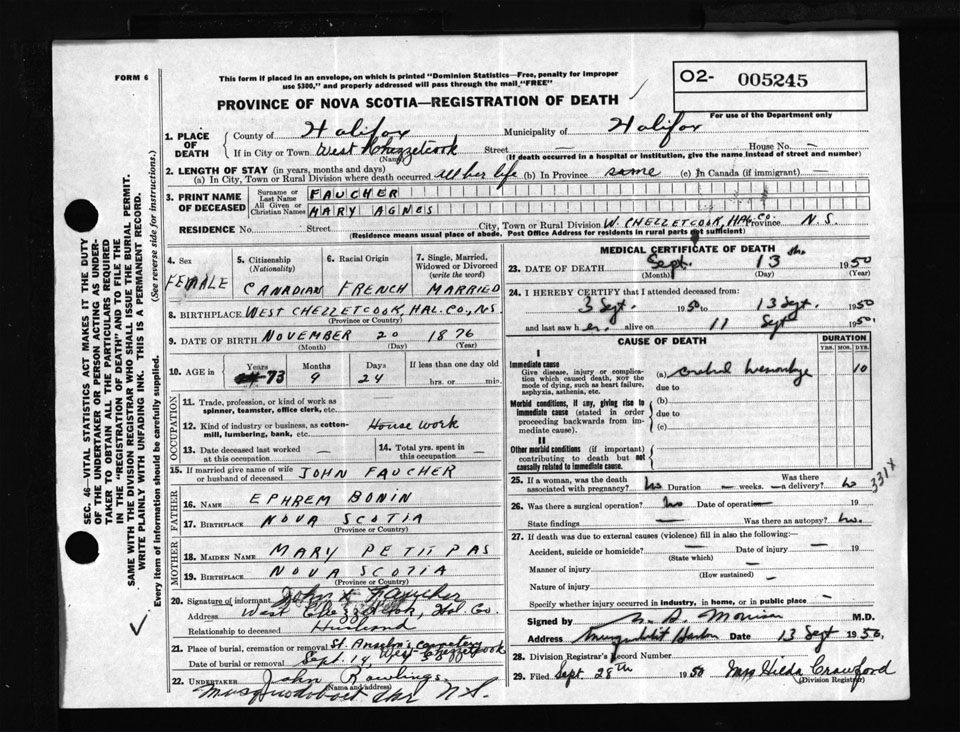 FORM 6
This form if placed in an envelope, on which is printed "Dominion Statistics—Free, penalty for improper
use $300," and properly addressed will pass through the mail "FREE"
PROVINCE OF NOVA SCOTIA—REGISTRATION OF DEATH
O2- 005245
For use of the Department only
1. PLACE OF DEATH
County of Halifax Municipality of Halifax
If in City or Town West Chezzetcook Street — House No. —
(Name) (If death occurred in a hospital or institution, give the name instead of street and number)
2. LENGTH OF STAY (in years, months and days)
(a) In City, Town or Rural Division where death occurred all her life (b) In Province same (c) In Canada (if immigrant) —
3. PRINT NAME OF DECEASED
Surname or Last Name FAUCHER
All Given or Christian Names MARY AGNES
RESIDENCE No. Street City, Town or Rural Division W. CHEZZETCOOK, HAL. CO. Province N.S.
(Residence means usual place of abode. Post Office Address for residents in rural parts not sufficient)
4. Sex FEMALE
5. Citizenship (Nationality) CANADIAN
6. Racial Origin FRENCH
7. Single, Married, Widowed or Divorced (write the word) MARRIED
8. BIRTHPLACE WEST CHEZZETCOOK, HAL. CO., N.S.
(Province or Country)
9. DATE OF BIRTH NOVEMBER 20 1876
(Month) (Day) (Year)
10. AGE in Years 73 Months 9 Days 24 If less than one day hrs. or min.
OCCUPATION
11. Trade, profession, or kind of work as
spinner, teamster, office clerk, etc.
12. Kind of industry or business, as cotton-
mill, lumbering, bank, etc. House work
13. Date deceased last worked at this occupation —
14. Total yrs. spent in this occupation —
15. If married give name of wife or husband of deceased JOHN FAUCHER
FATHER
16. NAME EPHREM BONIN
17. BIRTHPLACE NOVA SCOTIA
(Province or Country)
MOTHER
18. MAIDEN NAME MARY PETITPAS
19. BIRTHPLACE NOVA SCOTIA
(Province or Country)
20. Signature of informant John x Faucher
Address West Chezzetcook, Hal. Co.
Relationship to deceased Husband
21. Place of burial, cremation or removal St. Anselm's cemetery West Chezzetcook
Date of burial or removal Sept. 14, 19
22. Undertaker John Rawlings
(Name and address)
Musquodoboit Hbr N.S.
MEDICAL CERTIFICATE OF DEATH
23. DATE OF DEATH Sept. 13th 1950
(Month) (Day) (Year)
24. I HEREBY CERTIFY that I attended deceased from:
3 Sept. 1950 to 13 Sept. 1950
and last saw her alive on 11 Sept 1950.
CAUSE OF DEATH
DURATION
YRS. MOS. DYS.
I
Immediate cause
Give disease, injury or complica-
tion which caused death, NOT the
mode of dying, such as heart failure,
asphyxia, asthenia, etc.
(a) Cerebral hemorrhage 10
due to
Morbid conditions, if any, giving rise to
immediate cause (stated in order
proceeding backwards from im-
mediate cause).
(b)
due to
(c)
II
Other morbid conditions (if important)
contributing to death but not
causally related to immediate cause.
25. If a woman, was the death associated with pregnancy? no Duration — weeks. Was there a delivery? no
331X
26. Was there a surgical operation? no Date of operation — 19
State findings — Was there an autopsy? no.
27. If death was due to external causes (violence) fill in also the following:—
Accident, suicide or homicide? — Date of injury — 19
(State which)
Manner of injury —
(How sustained)
Nature of injury —
Specify whether injury occurred in industry, in home, or in public place —
Signed by Morison M.D.
Address Musquodoboit Harbor Date 13 Sept 1950.
28. Division Registrar's Record Number
29. Filed Sept. 28th 1950 Mrs Hilda Crawford
(Division Registrar)
SEC. 46—VITAL STATISTICS ACT MAKES IT THE DUTY
OF THE UNDERTAKER OR PERSON ACTING AS UNDER-
TAKER TO OBTAIN ALL THE PARTICULARS REQUIRED
IN THE "REGISTRATION OF DEATH" AND TO FILE THE
SAME WITH THE DIVISION REGISTRAR WHO SHALL ISSUE THE BURIAL PERMIT.
WRITE PLAINLY WITH UNFADING INK. THIS IS A PERMANENT RECORD.
Every item of information should be carefully supplied. (See reverse side for instructions.)